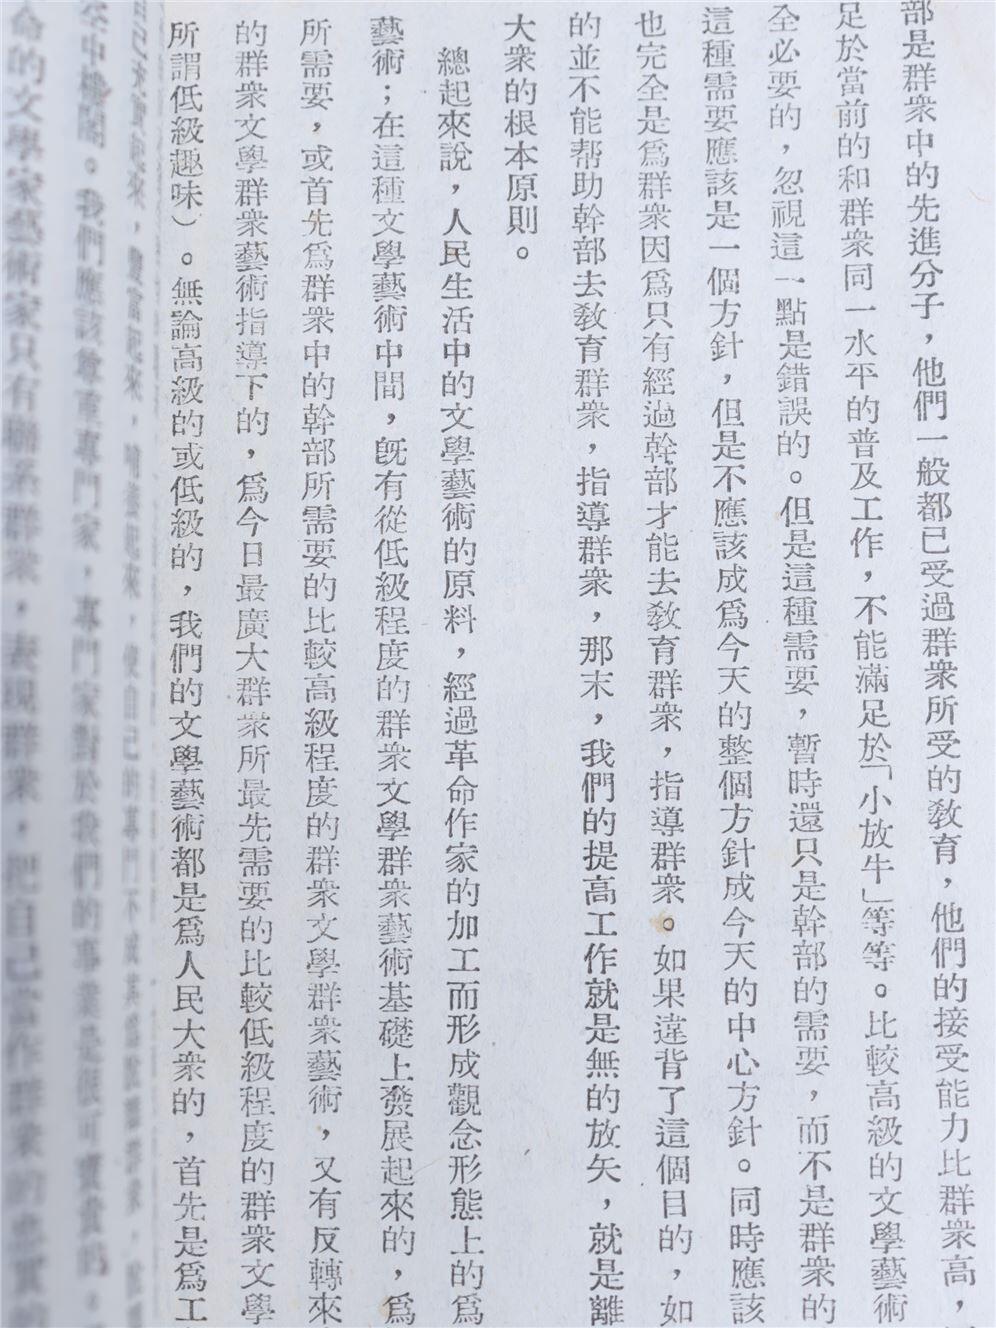 部是群衆中的先進分子，他們一般都已受過群衆所受的敎育，他們的接受能力比群衆高，
足於當前的和群衆同一水平的普及工作，不能滿足於「小放牛」等等。比較高級的文學藝術
全必要的，忽視這一點是錯誤的。但是這種需要，暫時還只是幹部的需要，而不是群衆的
這種需要應該是一個方針，但是不應該成爲今天的整個方針成今天的中心方針。同時應該
也完全是爲群衆因爲只有經過幹部才能去敎育群衆，指導群衆。如果違背了這個目的，如
的並不能帮助幹部去敎育群衆，指導群衆，那末，我們的提高工作就是無的放矢，就是離
大衆的根本原則。
總起來說，人民生活中的文學藝術的原料，經過革命作家的加工而形成觀念形態上的爲
藝術；在這種文學藝術中間，旣有從低級程度的群衆文學群衆藝術基礎上發展起來的，爲
所需要，或首先爲群衆中的幹部所需要的比較高級程度的群衆文學群衆藝術，又有反轉來
的群衆文學群衆藝術指導下的，爲今日最廣大群衆所最先需要的比較低級程度的群衆文學
所謂低級趣味）。無論高級的或低級的，我們的文學藝術都是爲人民大衆的，首先是爲工
自己充實起來，豐富起來，培養起來，使自己的專門不致
空中樓閣。我們應該尊重專門家，專門家對於我們的事業是很可寶貴的。
命的文學家藝術家只有聯系群衆，表現群衆，把自己當作群衆的忠實